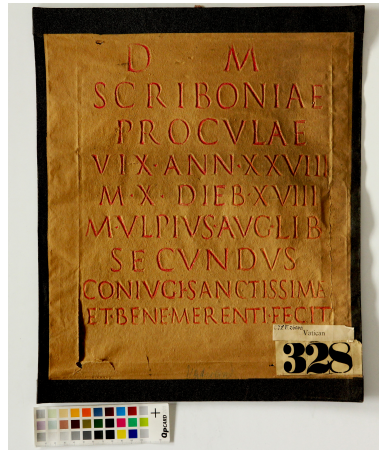 D M
SCRIBONIAE
PROCVLAE
VIX·ANN·XXVIII
M·X· DIEB·XVIII
M·VLPIVS·AVG·LIB
SECVNDVS
CONIVGI·SANCTISSIMA
ET·BENEMERENTI·FECIT
Vatican
328
QPCARD